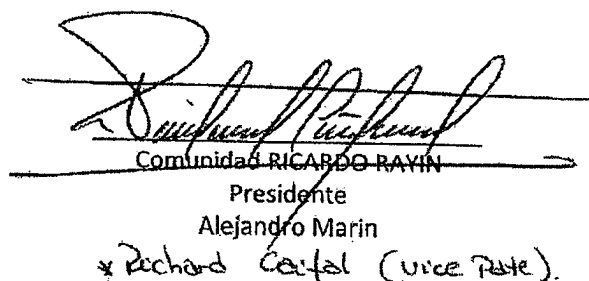 Comunidad RICARDO RAYIN
Presidente
Alejandro Marin
* Richard (vice Pdte).